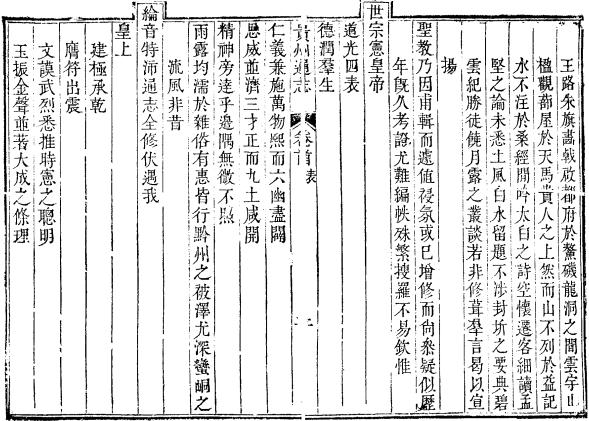 王路朱旗畵戟啟都府於鰲磯龍洞之間雲宇山
楹觀蔀屋於天馬貴人之上然而山不列於益記
水不注於桑經閒吟太白之詩空懷遷客細讀孟
堅之論未悉土風白水留題不涉封圻之要典碧
雲紀勝徒饒月露之叢談若非修葺羣言曷以宣
揚
聖教乃因甫輯而遽值祲氛或已增修而尙叅疑似歷
年旣久考證尤難編帙殊繁搜羅不易欽惟
世宗憲皇帝
道光四表
德潤羣生
貴州通志
卷首
表
仁義兼施萬物熙而六幽盡闢
恩威並濟三才正而九土咸開
精神旁達乎邊隅無微不照
雨露均濡於雜俗有惠皆行黔州之被澤尤深蠻峒之
流風非昔
綸音特沛通志全修伏遇我
皇上
建極承乾
膺符出震
文謨武烈悉推時憲之聰明
玉振金聲並著大成之條理